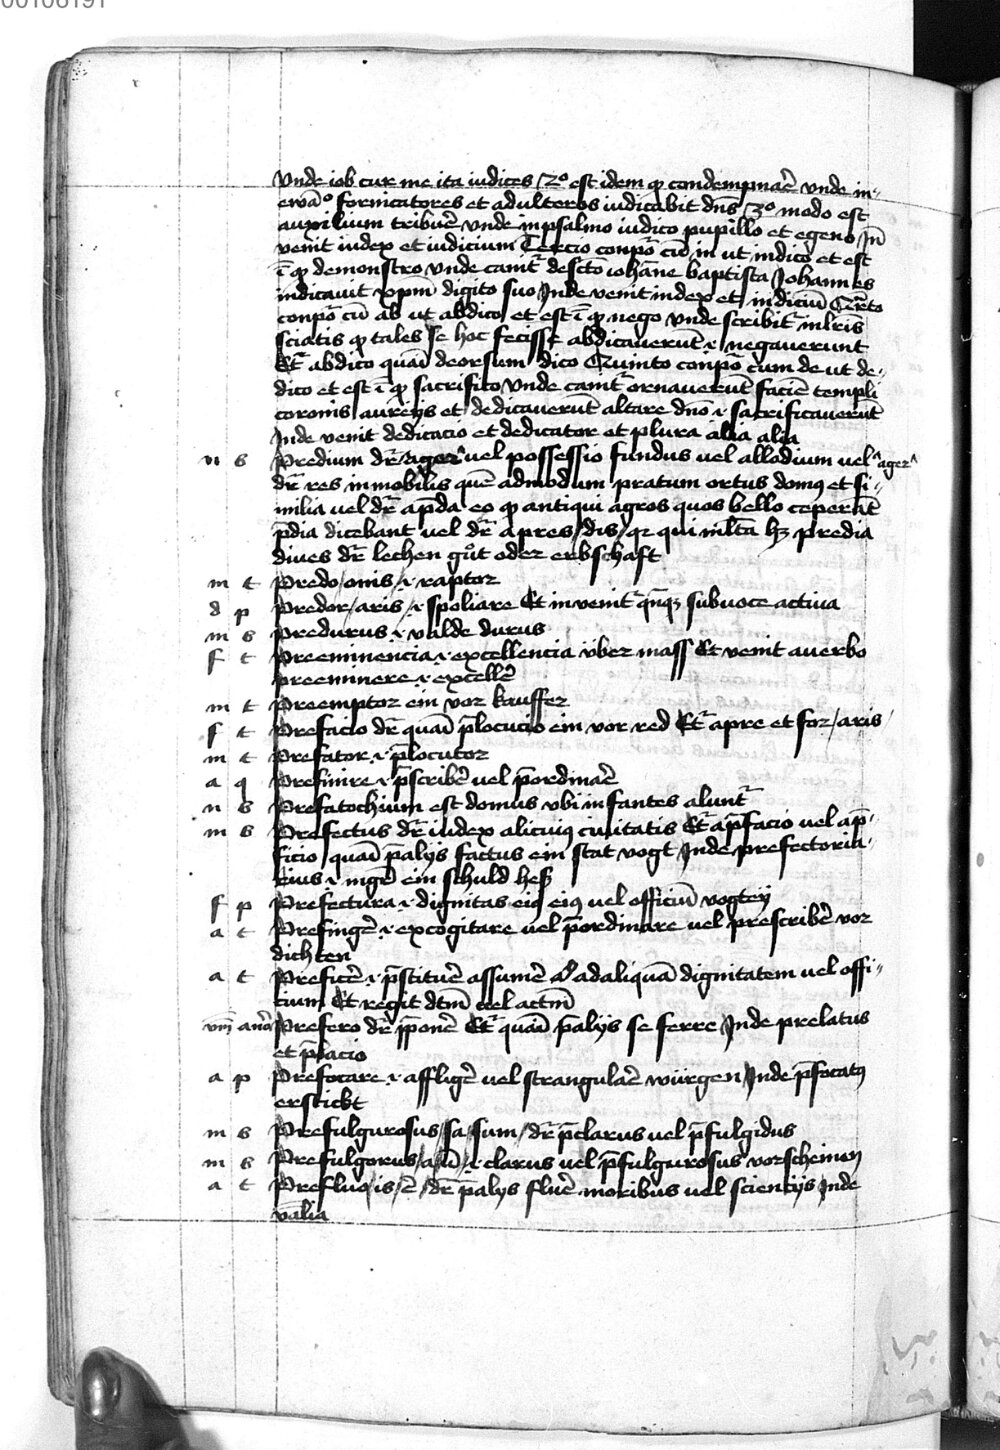 00106191
Vnde iob cur me ita iudices / 2º est idem qp condempnar̄ vnde in-
ewāº fornicatores et adulteros iudicabit dn̄s 3º modo est
auxilium tribuē vnde in psalmo iudico pupillo et egeno Jn̄
venit iudex et iudicium Tercio conpōr cū in ut indico et est
ī qp demonstro vnde canitr̄ de sc̄to ioh̄ane baptista Johannes
indicauit xp̄m digito suo Jnde venit index et indiciū Quarto
conpōr cū ab ut abdico et est ī qp nego vnde scribitr̄ in lr̄is
sciatis qp tales se hoc fecisse abdicauerūt .i. negauerunt
Et abdico quasi deorsum dico Quinto conpōr cum de ut de-
dico et est ī qp sacrifico Vnde canitr̄ ornauerūt faciē templi
coronis aureys et dedicauerūt altare dn̄o .i. sacrificauerūt
Jnde venit dedicacio et dedicator et plura alia alia
n s Predium dr̄ ager vel possessio fundus vel allodium vel ager
dr̄ res inmobilis quē admodum pratum ortus domꝯ et si-
milia vel dr̄ a p̄da eo qp antiqui agros quos bello ceperāt
p̄dia dicebant vel dr̄ a pres / dis / qr qui ml̄ta hꝫ predia
diues dr̄ lechen gůt oder erbschaft
m t Predo / onis / .i. raptor
d p Predor / aris / .i. spoliare Et inuenitr̄ qn̄qꝫ sub uoce actiua
m s Predurus .i. valde durus
f t Preeminencia .i. excellencia über mass Et venit a uerbo
preeminere .i. excellē
m t Preemptor ein vor kauffer
f t Prefacio dr̄ quasi p̄locucio ein vor red Et a pre et for / aris /
m t Prefator .i. p̄locutor
a q Prefinire .i. p̄scribē vel p̄ordinar̄
n s Prefatochium est domus vbi infantes aluntr̄
m s Prefectus dr̄ iudex alicuiꝯ ciuitatis Et a p̄facio vel a p̄-
ficio / quasi p̄ alijs factus ein stat vogt Jnde prefectoria-
cius .i. mgr̄ ein schuld heß
f p Prefectura .i. dignitas eiꝯ eiꝯ vel officiū vogtey
a t Prefingē .i. excogitare vel p̄ordinare vel prescribē vor
dichten
a t Preficē .i. p̄stituē assumē ad aliquā dignitatem vel offi-
cium Et regit dtm̄ vel actm̄
Prefero dr̄ p̄ponē Et quasi p̄ alijs se ferre Jnde prelatus
et p̄lacio
a p Prefocare .i. affligē vel strangular̄ würgen Jnde p̄focatꝯ
erstickt
m s Prefulgurosus / sa / sum / dr̄ p̄clarus vel p̄fulgidus
m s Prefulgorus / a / ū / .i. clarus vel p̄fulgurosus vorscheinen
a t Prefluo / is / ē / dr̄ p̄ alijs fluē moribus vel scientijs Jnde